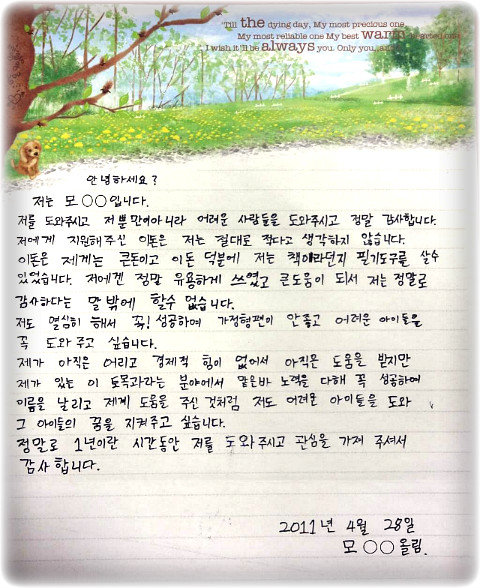 'Till the dying day, My most precious one
My most reliable one My best warm hearted one
I wish it'll be always you. Only you,
안녕하세요?
저는 모○○입니다.
저를 도와주시고 저뿐만이아니라 어려운 사람들을 도와주시고 정말 감사합니다.
저에게 지원해주신 이돈은 저는 절대로 적다고 생각하지 않습니다.
이돈은 제게는 큰돈이고 이돈 덕분에 저는 책이라던지 필기도구를 살수
있었습니다. 저에겐 정말 유용하게 쓰였고 큰도움이 되서 저는 정말로
감사하다는 말 밖에 할수 없습니다.
저도 열심히 해서 꼭! 성공하여 가정형편이 안좋고 어려운 아이들을
꼭 도와주고 싶습니다.
제가 아직은 어리고 경제적 힘이 없어서 아직은 도움을 받지만
제가 있는 이 도목과라는 분야에서 맡은바 노력을 다해 꼭 성공하여
이름을 날리고 제게 도움을 주신 것처럼 저도 어려운 아이들을 도와
그 아이들의 꿈을 지켜주고 싶습니다.
정말로 1년이란 시간동안 저를 도와주시고 관심을 가져 주셔서
감사합니다.
2011년 4월 28일
모○○올림.